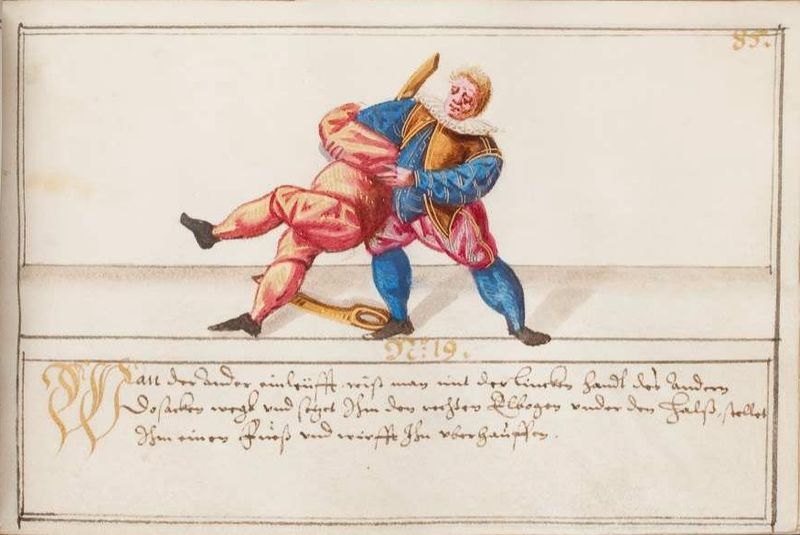 85.
No: 19.
Wan der Ander einleüfft, reist man mit der lincken handt des Andern
Dosacken wegk vnd setzet Ihm den rechten Elbogen vnder den Halß, stellet
Ihm einen Fueß vnd wirfft Ihn vberhauffen.